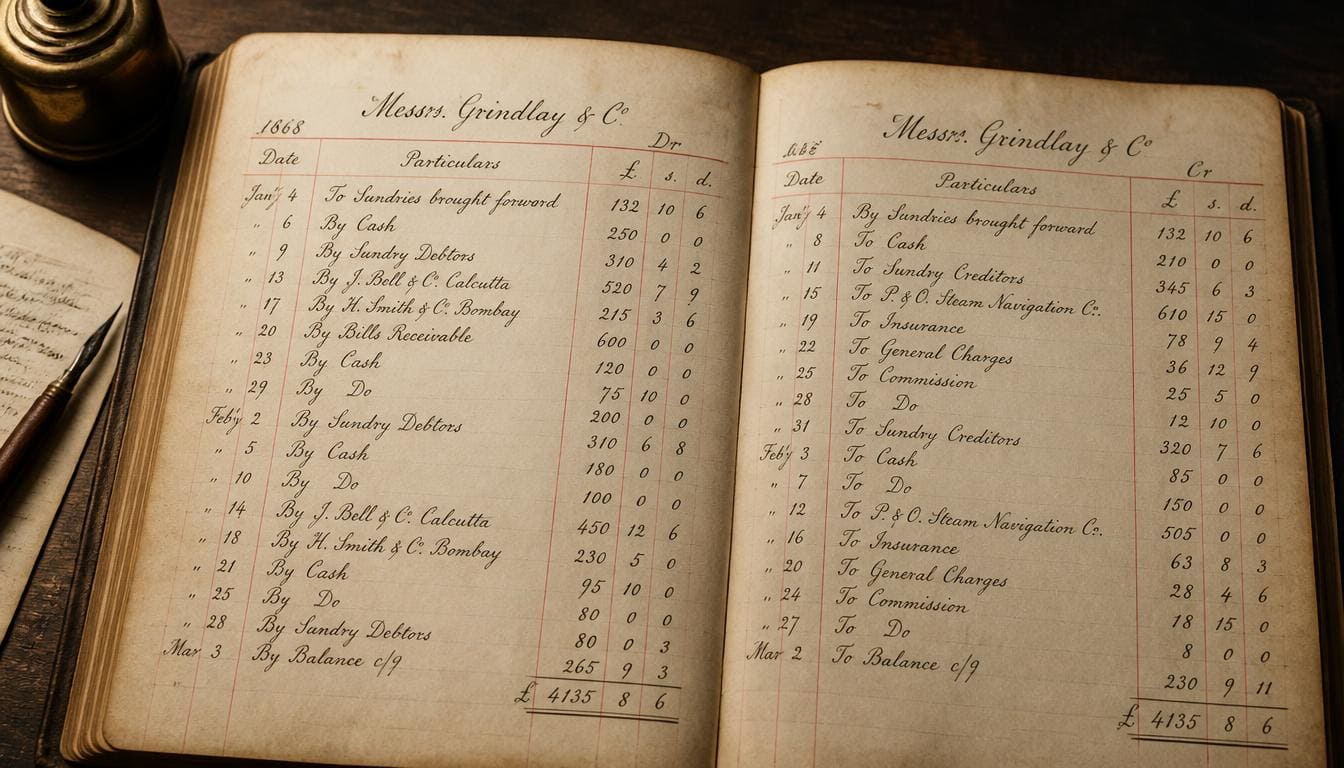 Messrs. Grindlay & Co.
1868 Dr
Date Particulars £ s. d.
Jan'y 4 To Sundries brought forward 132 10 6
„ 6 By Cash 250 0 0
„ 9 By Sundry Debtors 310 4 2
„ 13 By J. Bell & Co. Calcutta 520 7 9
„ 17 By H. Smith & Co. Bombay 215 3 6
„ 20 By Bills Receivable 600 0 0
„ 23 By Cash 120 0 0
„ 29 By Do 75 10 0
Feb'y 2 By Sundry Debtors 200 0 0
„ 5 By Cash 310 6 8
„ 10 By Do 180 0 0
100 0 0
„ 14 By J. Bell & Co. Calcutta 450 12 6
„ 18 By H. Smith & Co. Bombay 230 5 0
„ 21 By Cash 95 10 0
„ 25 By Do 80 0 0
„ 28 By Sundry Debtors 80 0 3
Mar 3 By Balance c/9 265 9 3
£ 4135 8 6
Messrs. Grindlay & Co
Cr
Date Particulars £ s. d.
Jan'y 4 By Sundries brought forward 132 10 6
„ 8 To Cash 210 0 0
„ 11 To Sundry Creditors 345 6 3
„ 15 To P. & O. Steam Navigation Co. 610 15 0
„ 19 To Insurance 78 9 4
„ 22 To General Charges 36 12 9
„ 25 To Commission 25 5 0
„ 28 To Do 12 10 0
„ 31 To Sundry Creditors 320 7 6
Feb'y 3 To Cash 85 0 0
„ 7 To Do 150 0 0
„ 12 To P. & O. Steam Navigation Co. 505 0 0
„ 16 To Insurance 63 8 3
„ 20 To General Charges 28 4 6
„ 24 To Commission 18 15 0
„ 27 To Do 8 0 0
Mar 2 To Balance c/9 230 9 11
£ 4135 8 6